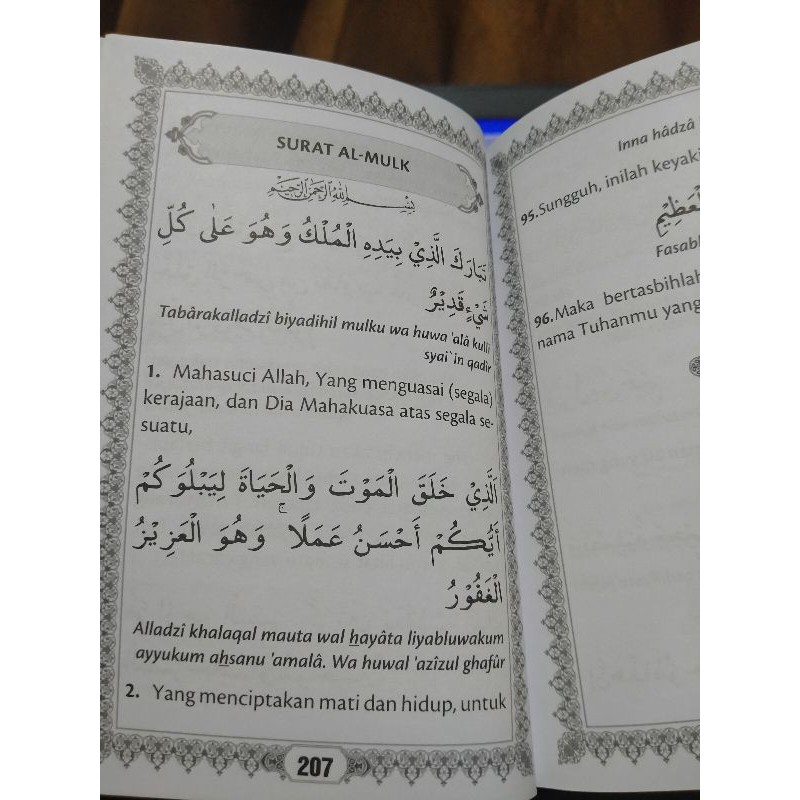 SURAT AL-MULK
بِسْمِ اللّٰهِ الرَّحْمٰنِ الرَّحِيْمِ
تَبَارَكَ الَّذِيْ بِيَدِهِ الْمُلْكُ وَهُوَ عَلٰى كُلِّ
شَيْءٍ قَدِيْرٌ
Tabârakalladzî biyadihil mulku wa huwa 'alâ kulli
syai`in qadîr
1. Mahasuci Allah, Yang menguasai (segala)
kerajaan, dan Dia Mahakuasa atas segala se-
suatu,
الَّذِيْ خَلَقَ الْمَوْتَ وَالْحَيَاةَ لِيَبْلُوَكُمْ
أَيُّكُمْ أَحْسَنُ عَمَلًا ۚ وَهُوَ الْعَزِيْزُ
الْغَفُوْرُ
Alladzî khalaqal mauta wal hayâta liyabluwakum
ayyukum ahsanu 'amalâ. Wa huwal 'azîzul ghafûr
2. Yang menciptakan mati dan hidup, untuk
207
Inna hâdzâ
95. Sungguh, inilah
الْعَظِيْمِ
96. Maka bertasbihlah
nama Tuhanmu yang